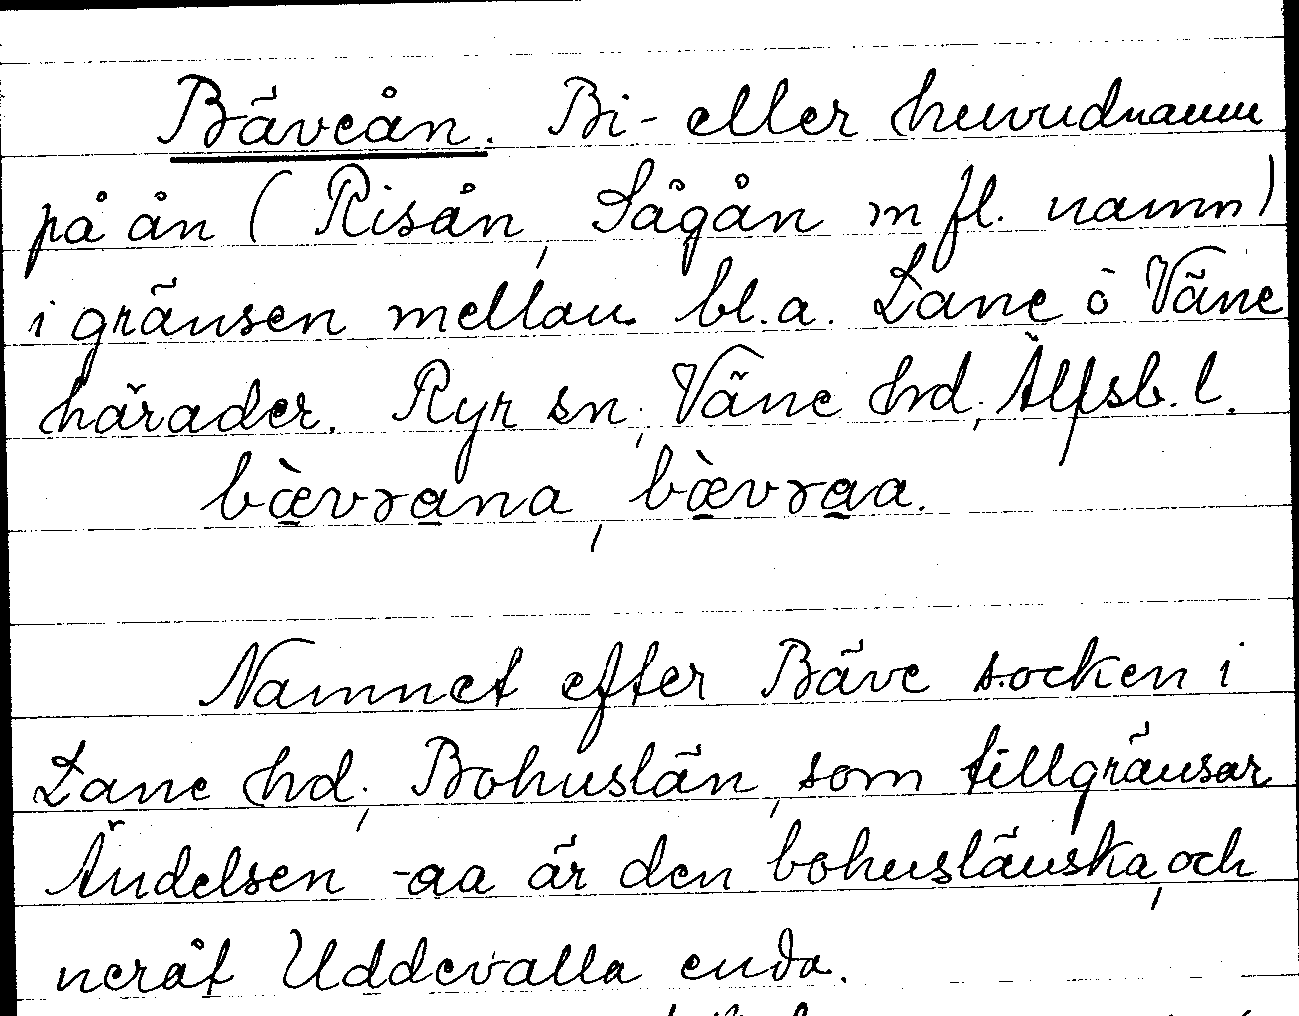 Bäveån. Bi- eller huvudnamn
på ån (Risån, Sågån m fl. namn)
i gränsen mellan bl.a. Lane o Väne
härader. Ryr sn, Väne hd, Älfsb. l.
bævrana, bævraa.
Namnet efter Bäve socken i
Lane hd, Bohuslän, som tillgränsar
Ändelsen -aa är den bohuslänska, och
neråt Uddevalla enda.